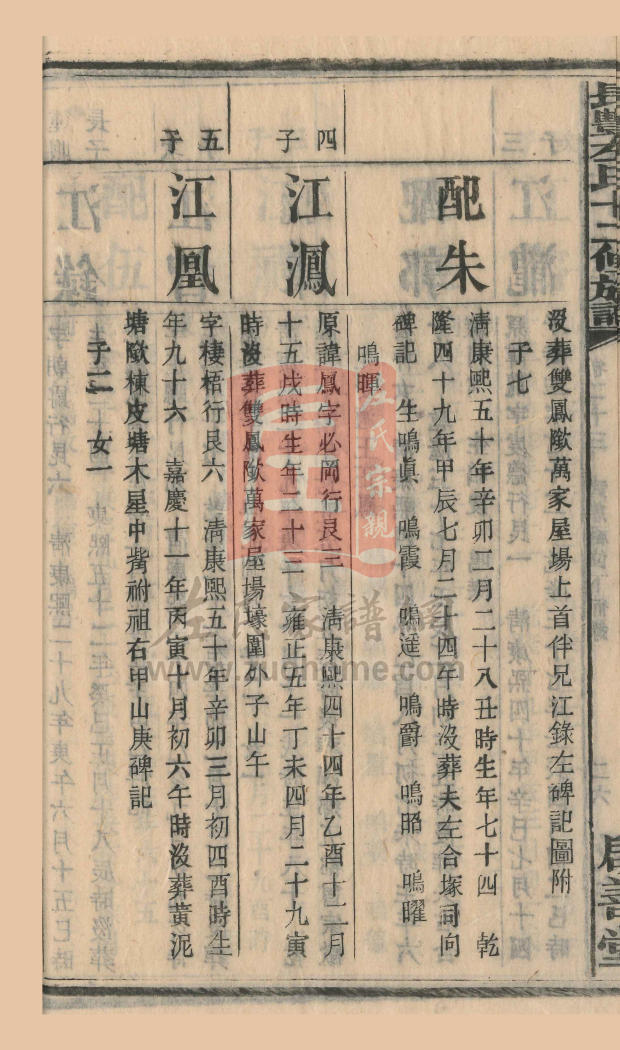 長豐左氏十二修族譜
居善堂
沒葬雙鳳歐萬家屋場上首伴兄江錄左碑記圖附
子七
配朱
清康熙五十年辛卯二月二十八丑時生年七十四　乾
隆四十九年甲辰七月二十四午時沒葬夫左合塚同向
碑記　生鳴眞　鳴霞　鳴遥　鳴爵　鳴昭　鳴曜
鳴暉
四子
江鳳
原諱鳳字必岡行艮三　清康熙四十四年乙酉十二月
十五戌時生年二十三　雍正五年丁未四月二十九寅
時沒葬雙鳳歐萬家屋場壕圍外子山午
五子
江凰
字棲梧行艮六　清康熙五十年辛卯三月初四酉時生
年九十六　嘉慶十一年丙寅十月初六午時沒葬黃泥
塘歐棟皮塘木星中嘴祔祖右甲山庚碑記
子二　女一
左氏宗親
左氏家譜網
www.zuohome.com